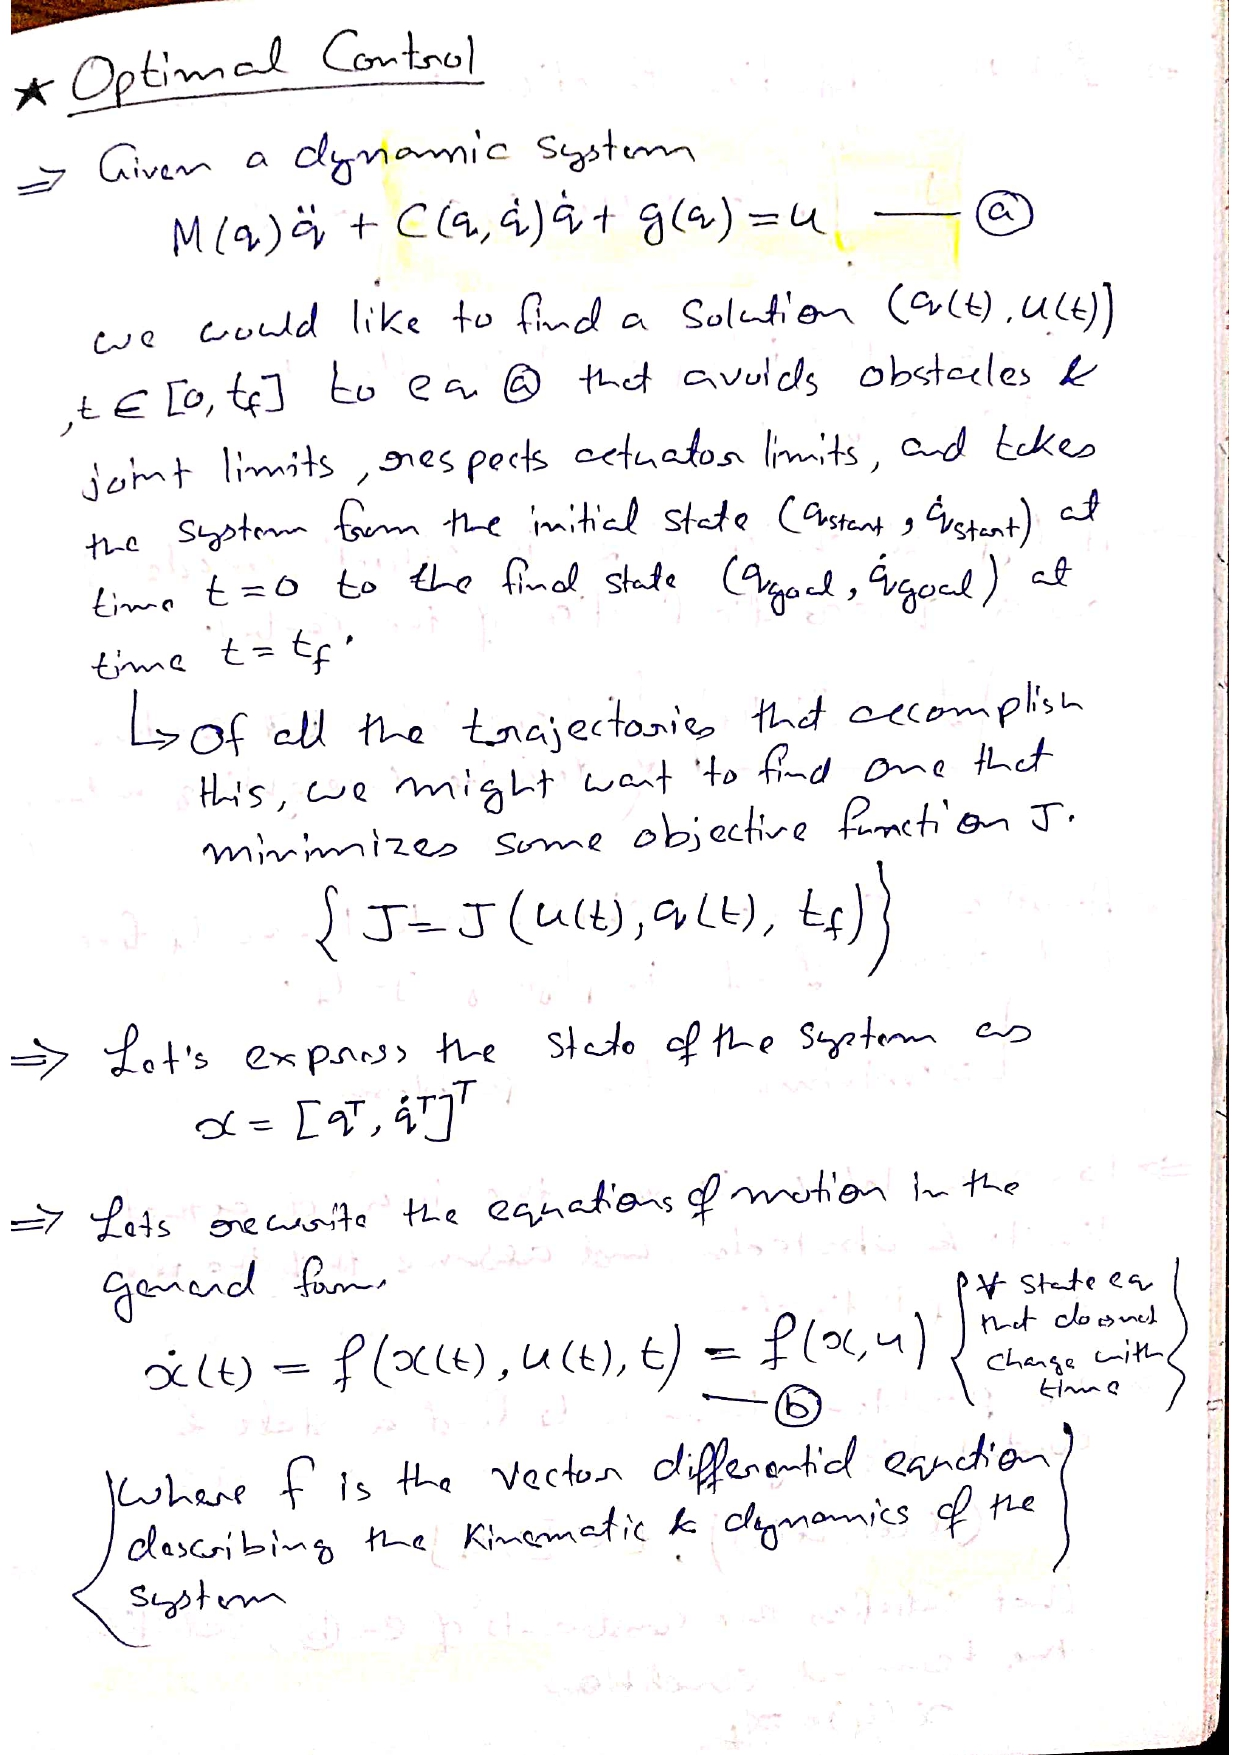 ★ Optimal Control
⇒ Given a dynamic system
M(q)q̈ + C(q, q̇)q̇ + g(q) = u —— ⓐ
we would like to find a solution (q(t), u(t)]
, t ∈ [0, tf] to eq ⓐ that avoids obstacles &
joint limits, respects actuator limits, and takes
the system from the initial state (qstart, q̇start) at
time t=0 to the final state (qgoal, q̇goal) at
time t = tf.
↳ Of all the trajectories that accomplish
this, we might want to find one that
minimizes some objective function J.
{ J = J(u(t), q(t), tf) }
⇒ Let's express the state of the system as
x = [qᵀ, q̇ᵀ]ᵀ
⇒ Lets rewrite the equations of motion in the
general form
ẋ(t) = f(x(t), u(t), t) = f(x, u) —ⓑ
{ ∀ state eq
that doesnot
change with
time }
{ where f is the vector differential equation
describing the kinematic & dynamics of the
system }